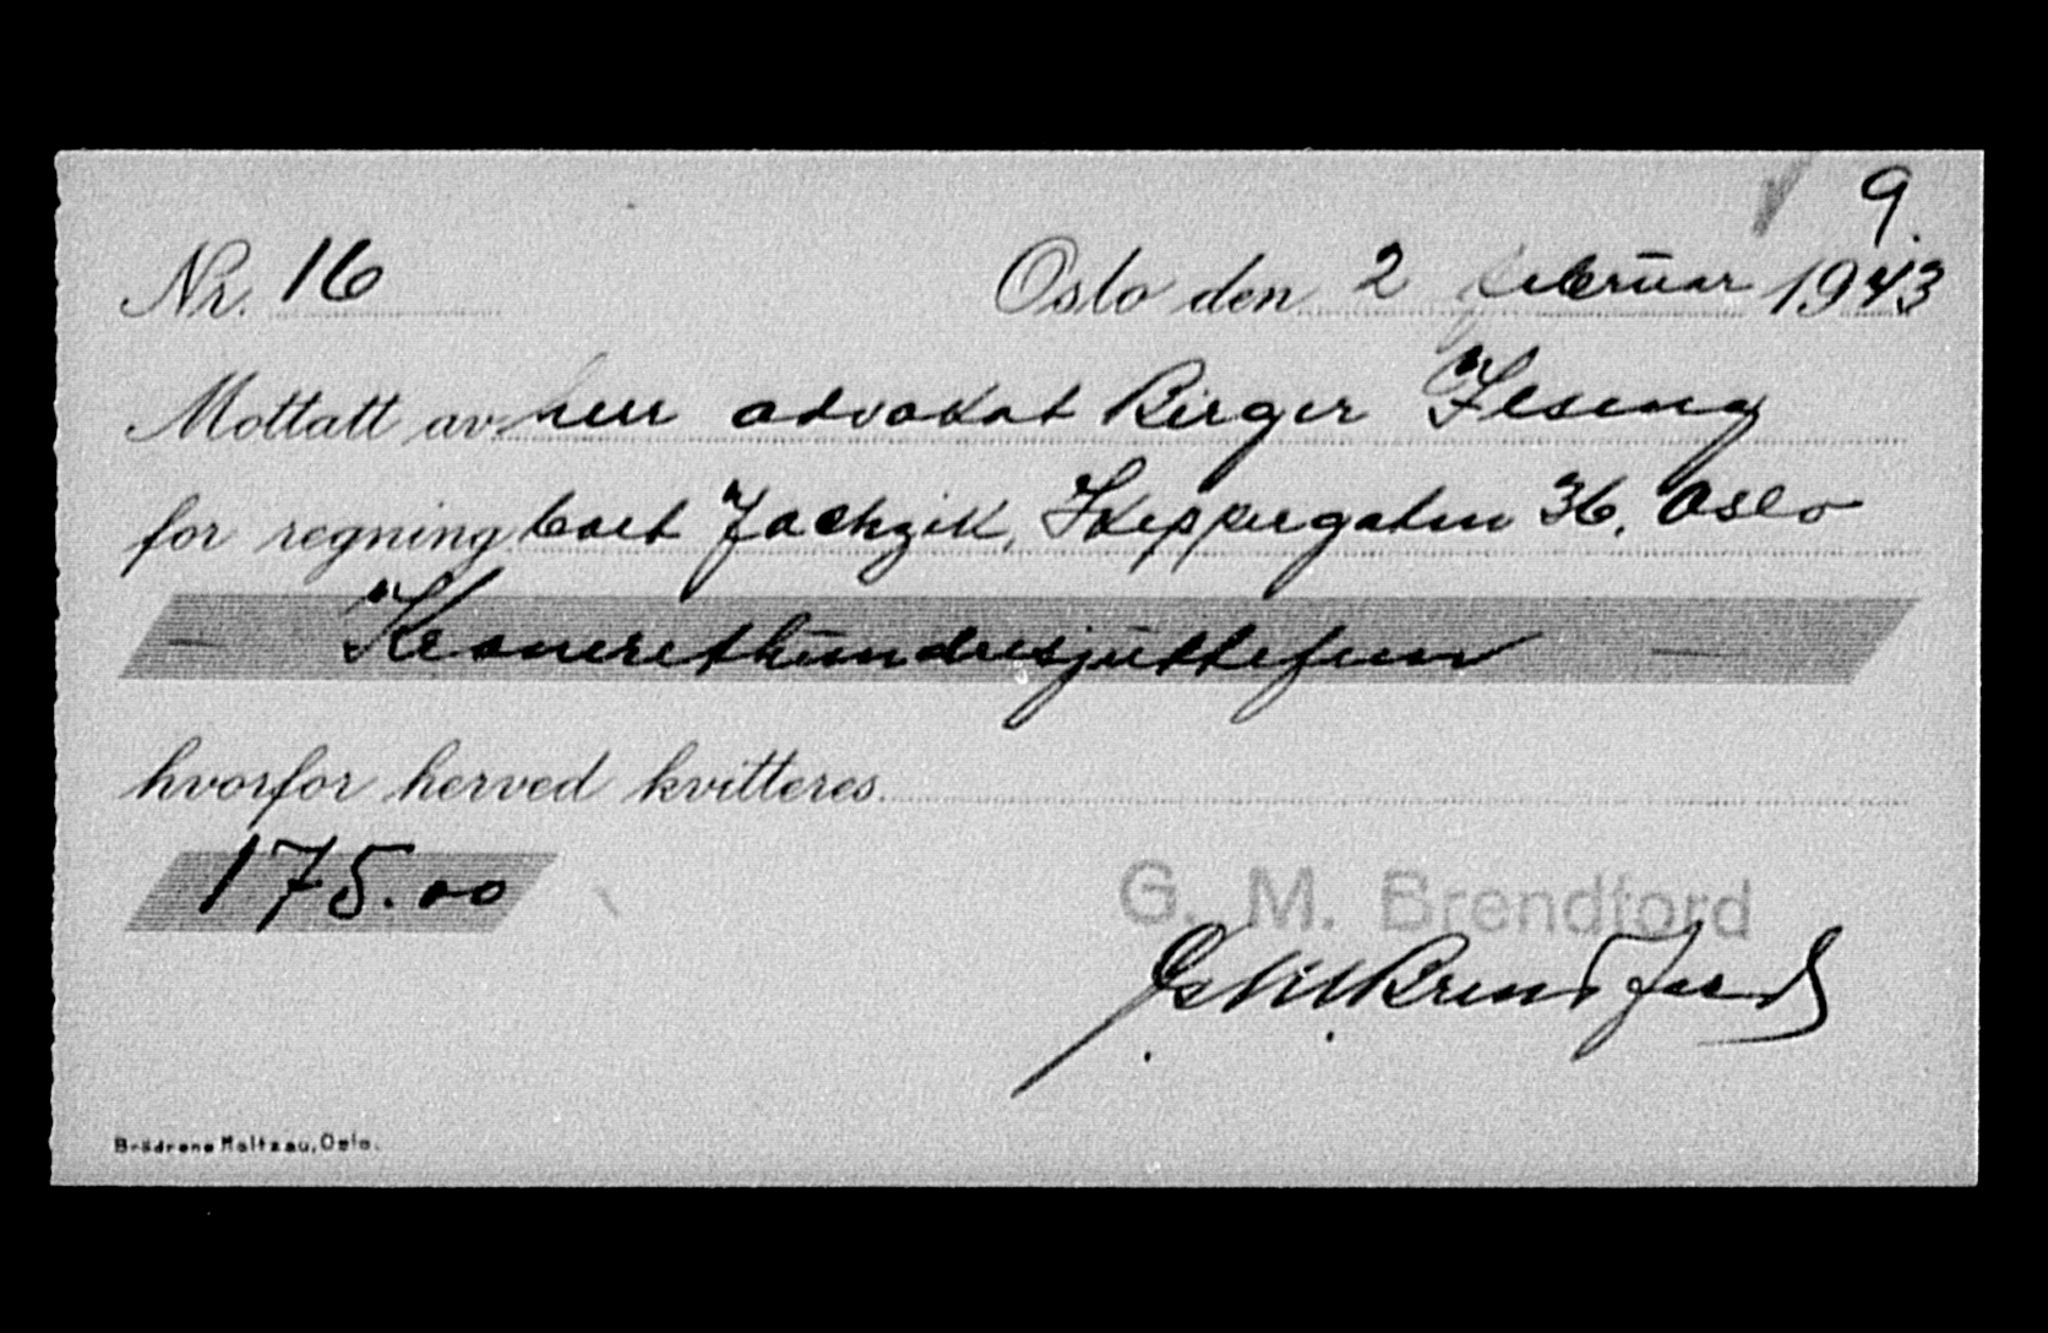 9.
Nr. 16 Oslo den 2 februar 1943
Mottatt av herr advokat Birger
for regning boet Jachzik, Skippergaten 36, Oslo
— Kronerethundresjüttefem —
hvorfor herved kvitteres.
175.00
G. M. Brendford
G. M. Brendford
Brødrene Maltzau, Oslo.